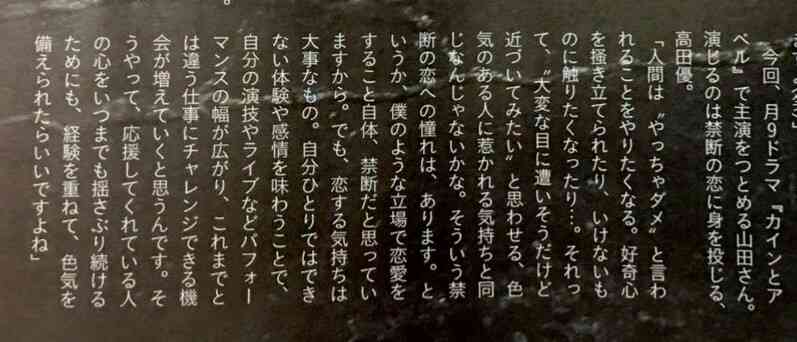 。
今回、月9ドラマ『カインとア
ベル』で主演をつとめる山田さん。
演じるのは禁断の恋に身を投じる、
高田優。
「人間は〝やっちゃダメ〟と言わ
れることをやりたくなる。好奇心
を掻き立てられたり、いけないも
のに触りたくなったり…。それっ
て、〝大変な目に遭いそうだけど
近づいてみたい〟と思わせる、色
気のある人に惹かれる気持ちと同
じなんじゃないかな。そういう禁
断の恋への憧れは、あります。と
いうか、僕のような立場で恋愛を
すること自体、禁断だと思ってい
ますから。でも、恋する気持ちは
大事なもの。自分ひとりではでき
ない体験や感情を味わうことで、
自分の演技やライブなどパフォー
マンスの幅が広がり、これまでと
は違う仕事にチャレンジできる機
会が増えていくと思うんです。そ
うやって、応援してくれている人
の心をいつまでも揺さぶり続ける
ためにも、経験を重ねて、色気を
備えられたらいいですよね」